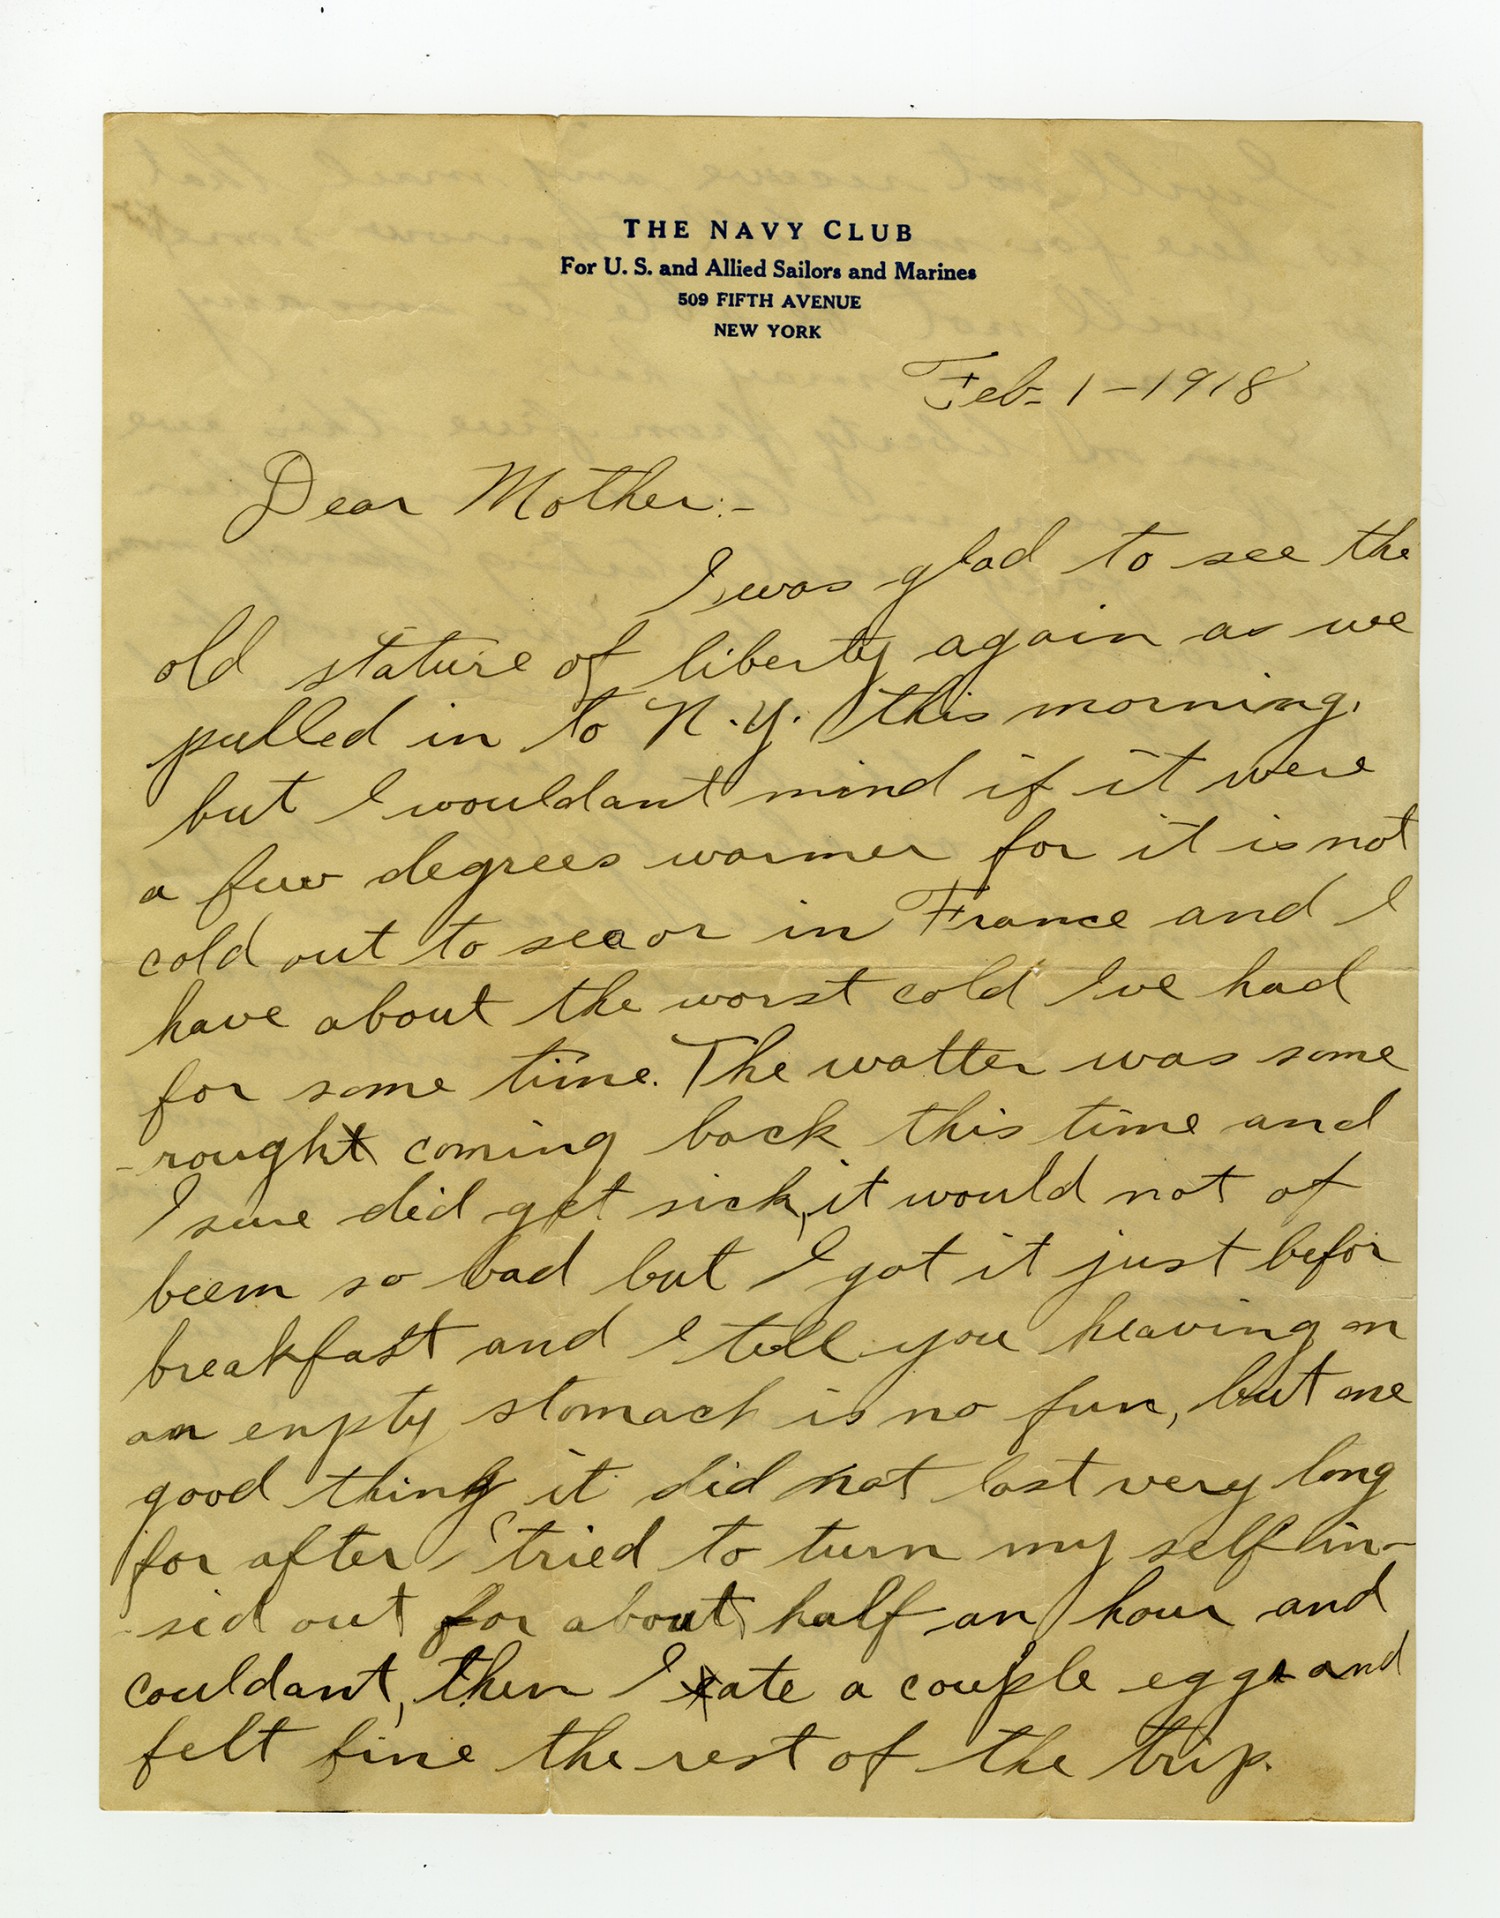 THE NAVY CLUB
For U. S. and Allied Sailors and Marines
509 FIFTH AVENUE
NEW YORK
Feb- 1-1918
Dear Mother:-
I was glad to see the
old stature of liberty again as we
pulled in to N.Y. this morning.
but I wouldant mind if it were
a few degrees warmer for it is not
cold out to sea or in France and I
have about the worst cold Ive had
for some time. The watter was some
rough coming back this time and
I sure did get sick, it would not of
beem so bad but I got it just befor
breakfast and I tell you heaving on
an enpty stomach is no fun, but one
good thing it did not last very long
for after I tried to turn my self in-
sid out for about half an hour and
couldant, then I ate a couple eggs and
felt fine the rest of the trip.